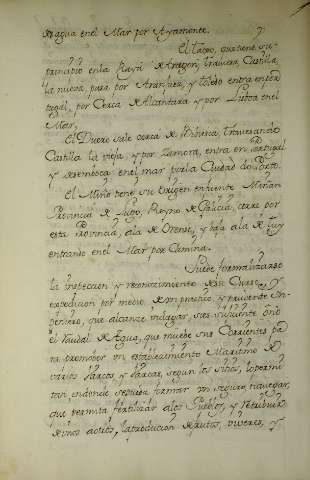 Desagua en el Mar por Ayamonte.
El Tajo, que tiene su
principio en la Raya de Aragon, traviesa Castilla
la nueva, pasa por Aranjuez, y toledo entra en por
tugal, por Cerca de Alcantara y por Lisboa en el
Mar.
El Duero sale cerca de travesando
Castilla la vieja, y por Zamora, entra en Portugal
y desemboca en el mar por la Ciudad do Porto.
El Miño tiene su origen en fuente Miñan
Provincia de Lugo, Reyno de Galicia, corre por
esta Provincia, a la de Orense, y baja a la de Tuy
entrando en el Mar por Camina.
Puede formalizarse
la inspeccion y reconocimiento de su Curso, y
expedicion por medio de un practico, y prudente In-
geniero, que alcanze indagar, si es suficiente
el Caudal de Agua, que muebe sus Corrientes pa
ra promober un establecimiento Maritimo de
varios Barcos, y Barcas, segun los sitios, lo permi
tan, en donde se pueda formar un seguro navegar,
que permita fertilizar a los Pueblos, y retribuir
de unos a otros, la produccion de frutos, viveres, y